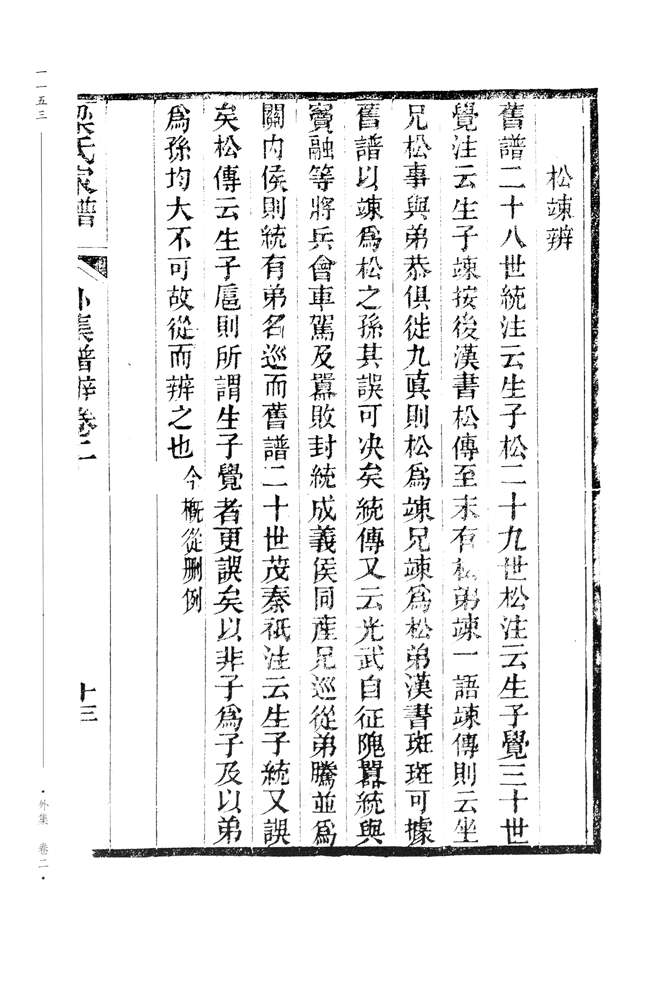 松竦辨
舊譜二十八世統注云生子松二十九世松注云生子覺三十世
覺注云生子竦按後漢書松傳至末有松弟竦一語竦傳則云坐
兄松事與弟恭俱徙九真則松爲竦兄竦爲松弟漢書斑斑可據
舊譜以竦爲松之孫其誤可决矣統傳又云光武自征隗囂統與
竇融等將兵會車駕及囂敗封統成義侯同産兄巡從弟騰並爲
關内侯則統有弟名巡而舊譜二十世茂秦祇注云生子統又誤
矣松傳云生子扈則所謂生子覺者更誤矣以非子爲子及以弟
爲孫均大不可故從而辨之也 今概從删例
梁氏家譜 外集譜辨卷二 十三
一一五三
·外集 卷二·